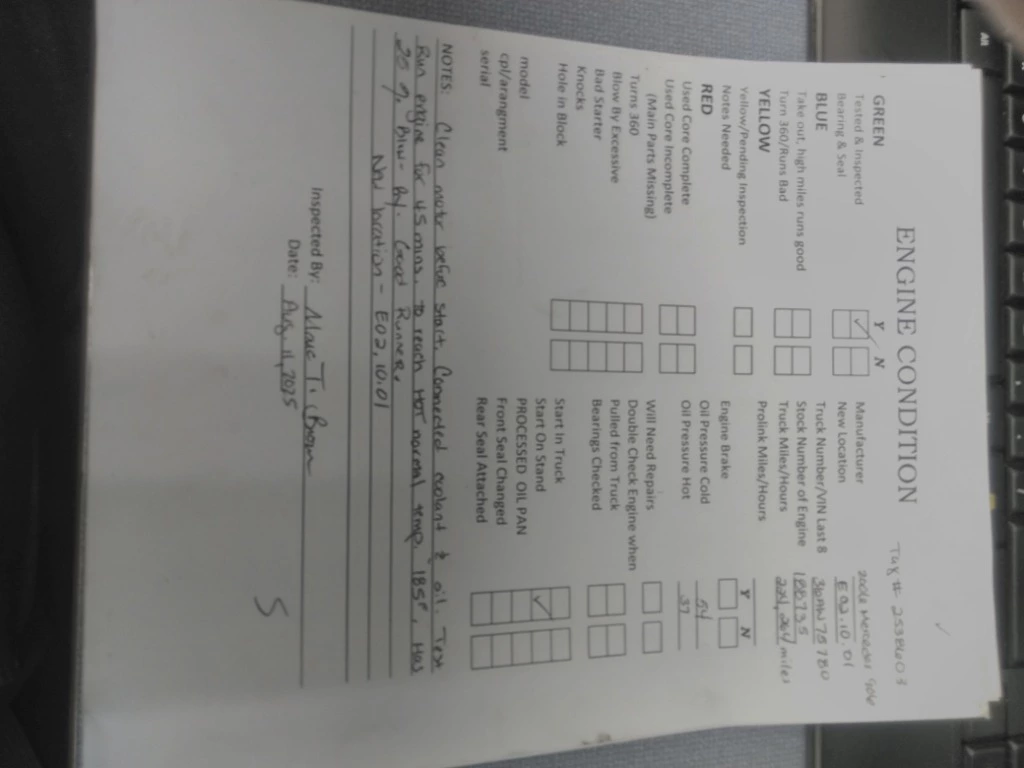 Tag # 2538603
ENGINE CONDITION
Y / N
GREEN
Tested & Inspected
Bearing & Seal
BLUE
Take out, high miles runs good
Turn 360/Runs Bad
YELLOW
Yellow/Pending Inspection
Notes Needed
RED
Used Core Complete
Used Core Incomplete
(Main Parts Missing)
Turns 360
Blow By Excessive
Bad Starter
Knocks
Hole in Block
model
cpl/arangment
serial
Manufacturer 2006 906
New Location E02.10.01
Truck Number/VIN Last 8
Stock Number of Engine 188735
Truck Miles/Hours 224,264/miles
Prolink Miles/Hours
Y N
Engine Brake
Oil Pressure Cold
Oil Pressure Hot 37
Will Need Repairs
Double Check Engine when
Pulled from Truck
Bearings Checked
Start In Truck
Start On Stand
PROCESSED OIL PAN
Front Seal Changed
Rear Seal Attached
NOTES: Clean motor before start, Connected coolant & oil, Test
Run engine for 45 mins. to reach HOT normal temp. 185°, Has
Blow-by. Good Runner,
New location - E02.10.01
Inspected By: T. Brown
Date: Aug. 11, 2025
5